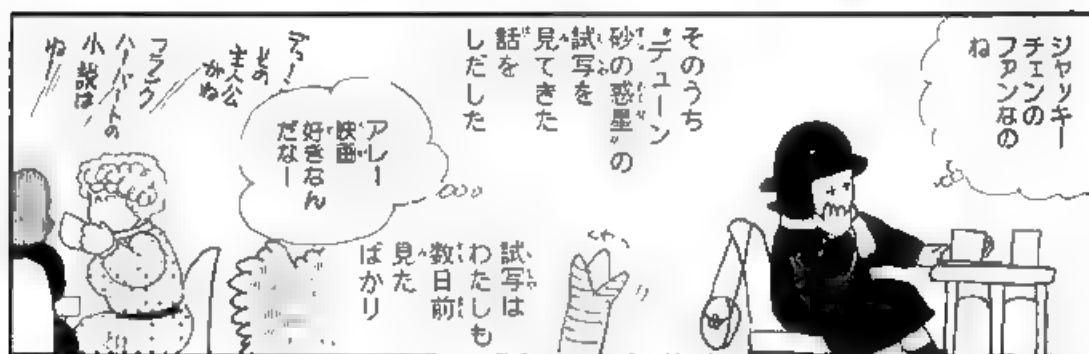 ジャッキー
チェンの
ファンなの
ね
そのうち
“デューン
砂の惑星”の
試写を
見てきた
話を
しだした
くわっ
試写は
わたしも
数日前
見た
ばかり
アレー
映画
好きなん
だなー
デュー!
その
主人公
がね
フランク
ハーバートの
小説は
ね